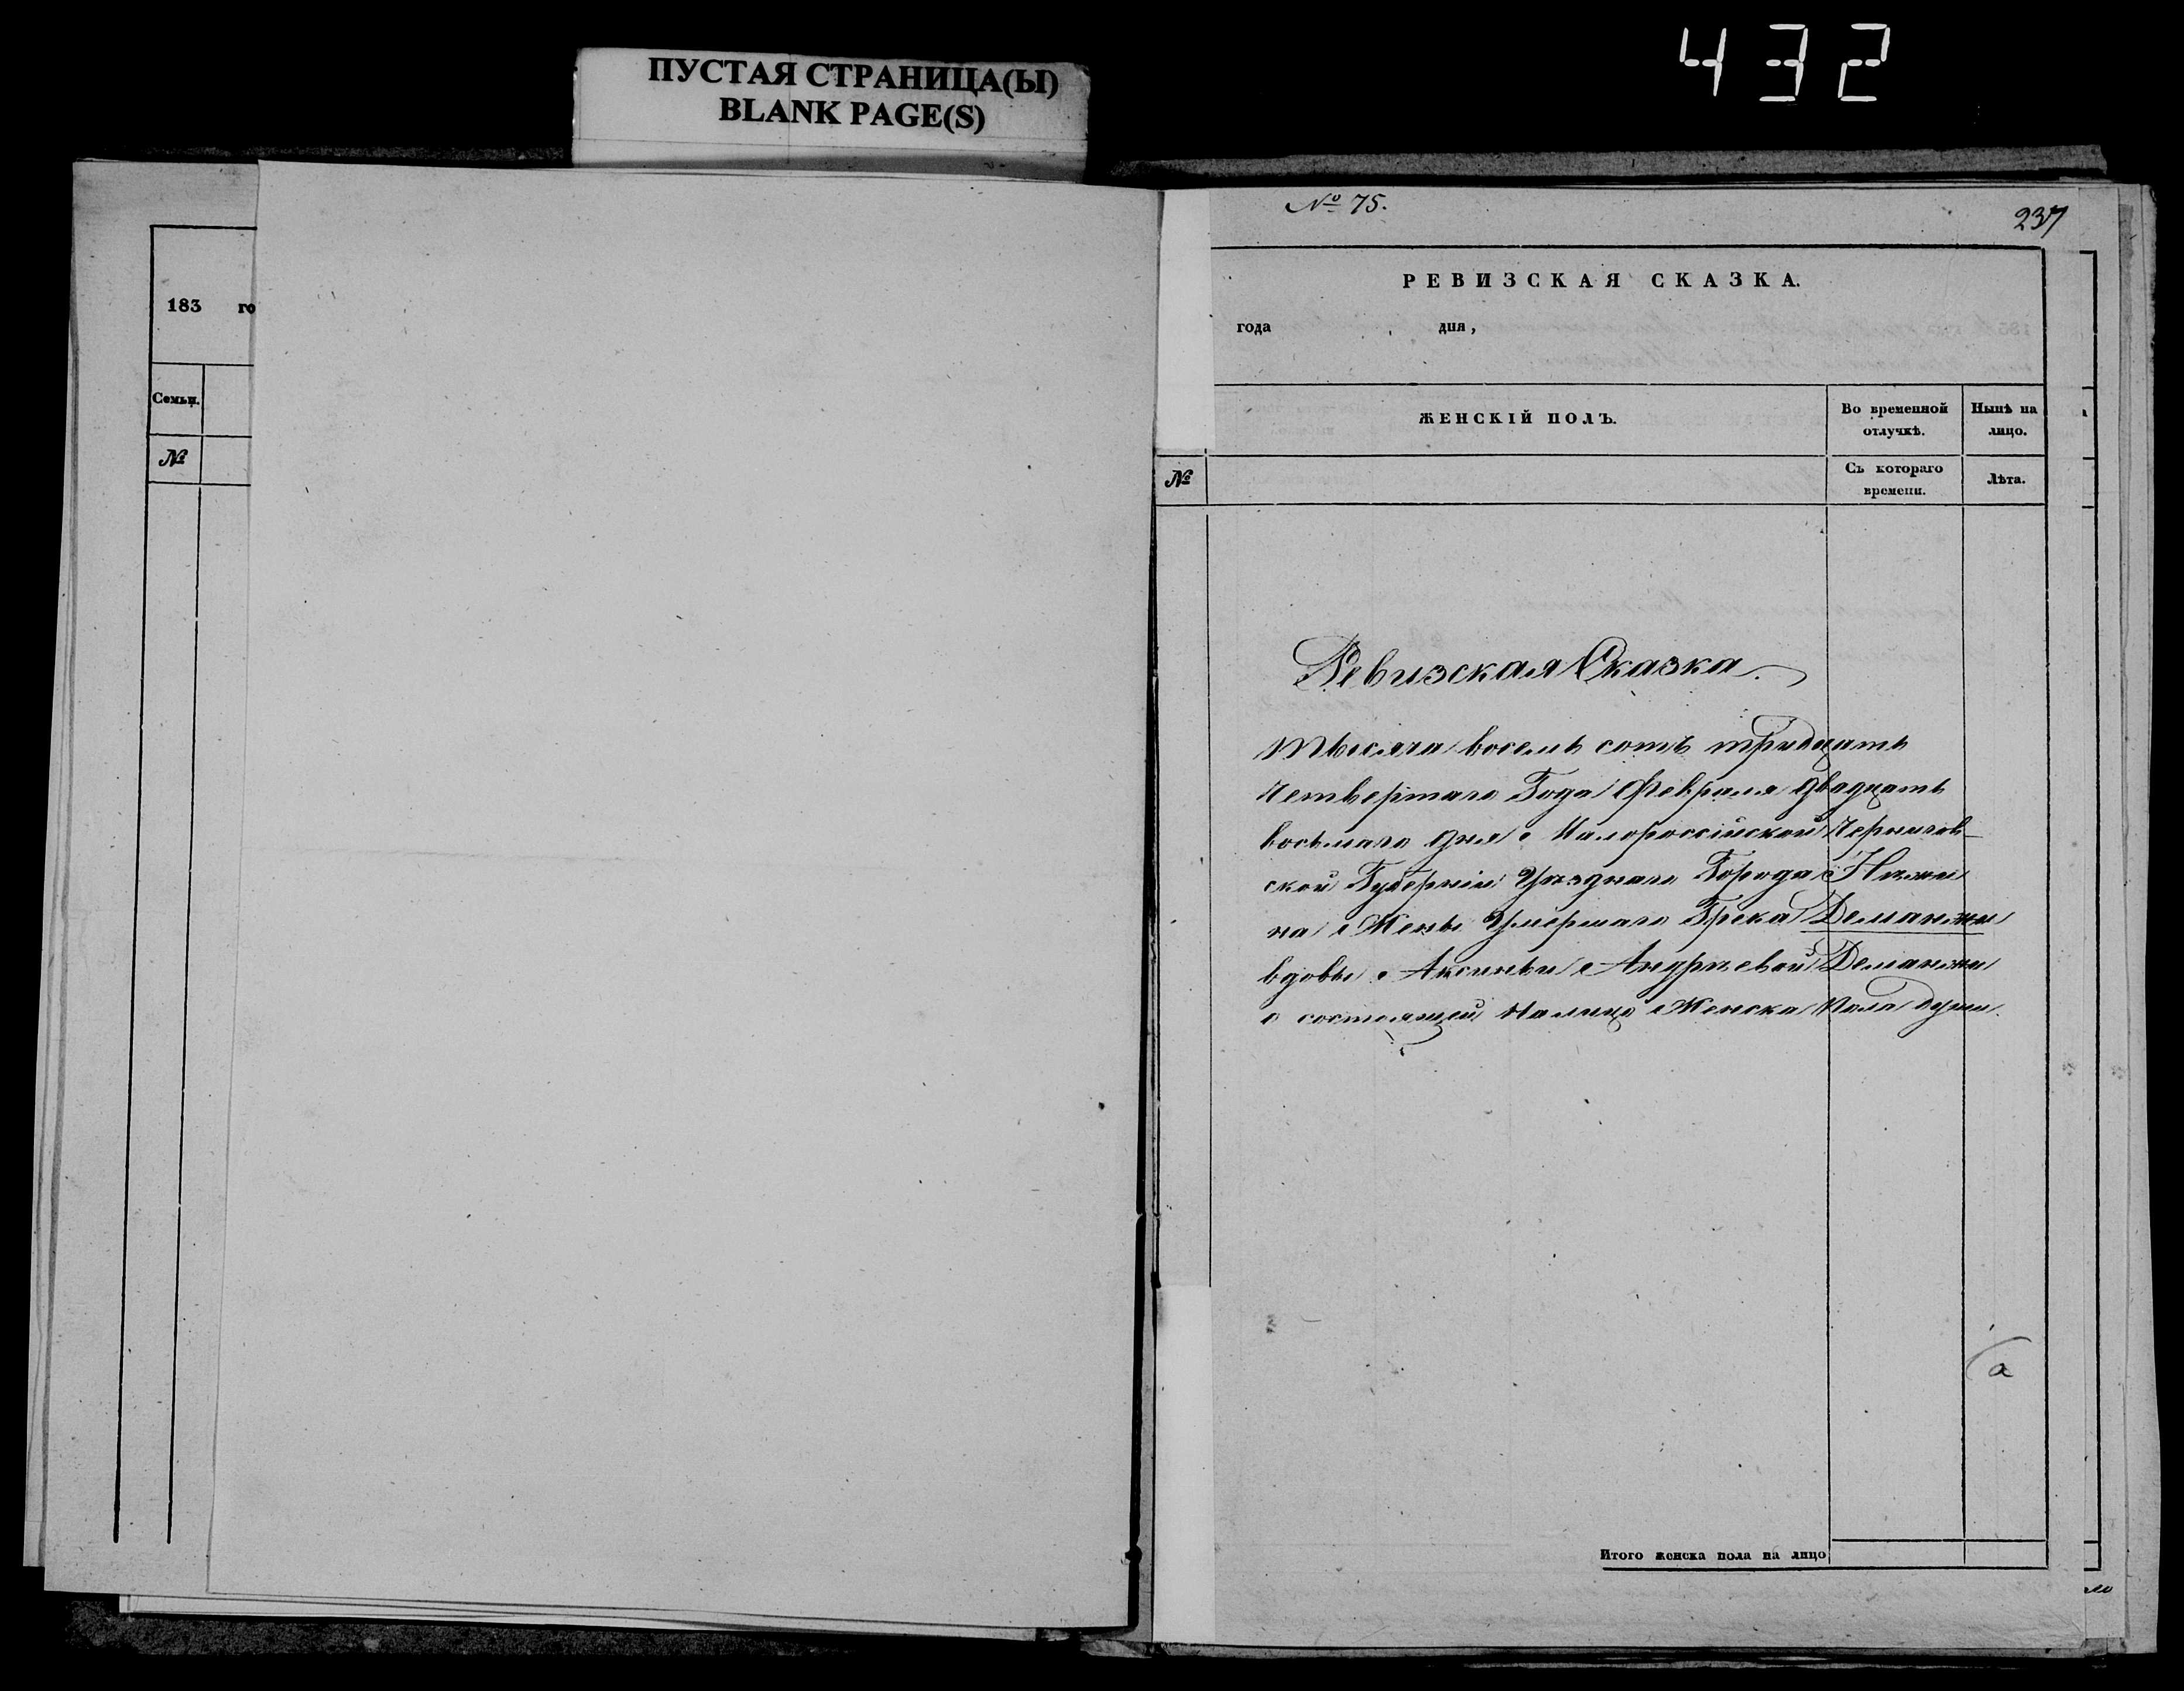 432
ПУСТАЯ СТРАНИЦА(Ы)
BLANK PAGE(S)
183 го
Семьи.
№
№ 75.
237
РЕВИЗСКАЯ СКАЗКА.
года дня,
ЖЕНСКІЙ ПОЛЪ.
Во временной отлучкѣ.
Нынѣ на лицо.
№
Съ котораго времени.
Лѣта.
Ревизская Сказка.
Тысяча восемь сотъ тридцать
четвертаго Года Февраля двадцать
восьмаго дня Малороссійской Чернигов
ской Губерніи Уѣзднаго Города Нѣжи
на Жены Умершаго Грека Деманжи
вдовы Аксиньи Андрѣевой Деманжи
о состоящей налицо Женска Пола души.
а
Итого женска пола на лицо